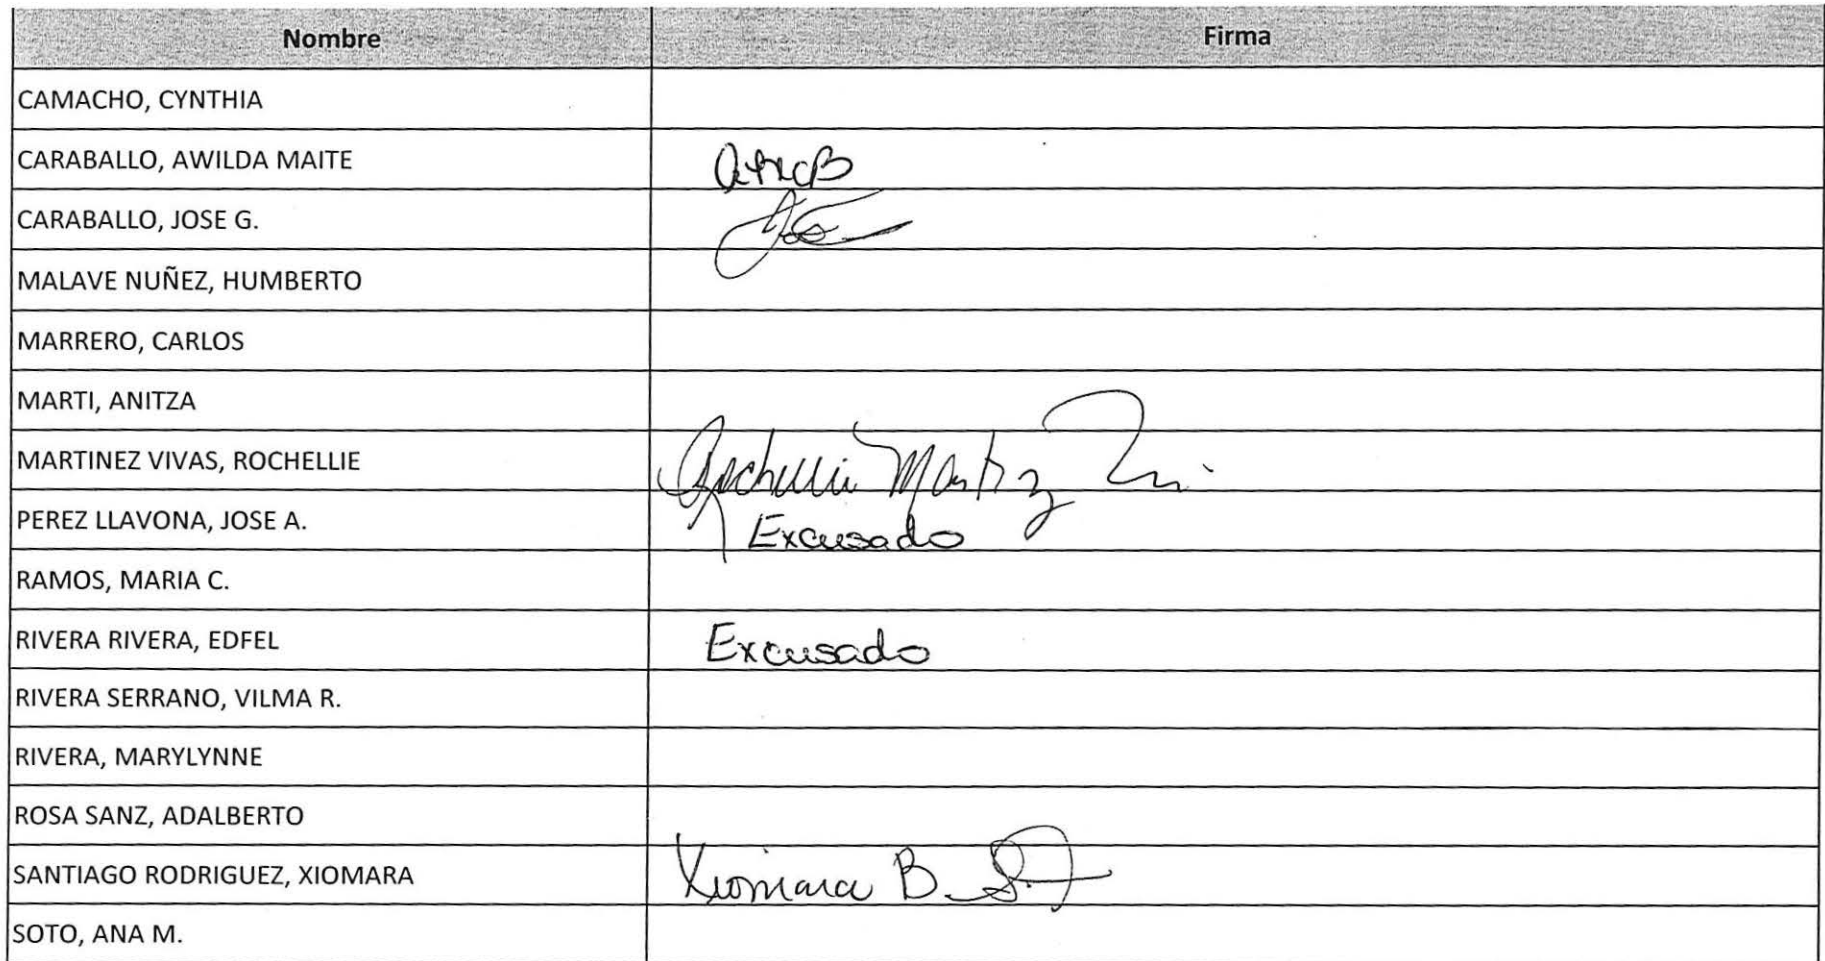 Nombre Firma
CAMACHO, CYNTHIA
CARABALLO, AWILDA MAITE
CARABALLO, JOSE G.
MALAVE NUÑEZ, HUMBERTO
MARRERO, CARLOS
MARTI, ANITZA
MARTINEZ VIVAS, ROCHELLIE Rochellie Martinez
PEREZ LLAVONA, JOSE A. Excusado
RAMOS, MARIA C.
RIVERA RIVERA, EDFEL Excusado
RIVERA SERRANO, VILMA R.
RIVERA, MARYLYNNE
ROSA SANZ, ADALBERTO
SANTIAGO RODRIGUEZ, XIOMARA Xiomara B.
SOTO, ANA M.